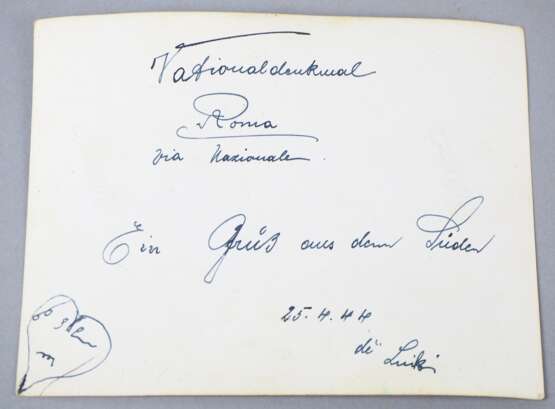 Nationaldenkmal
Roma
via Nazionale.
Ein Gruß aus dem Süden
25.4.44